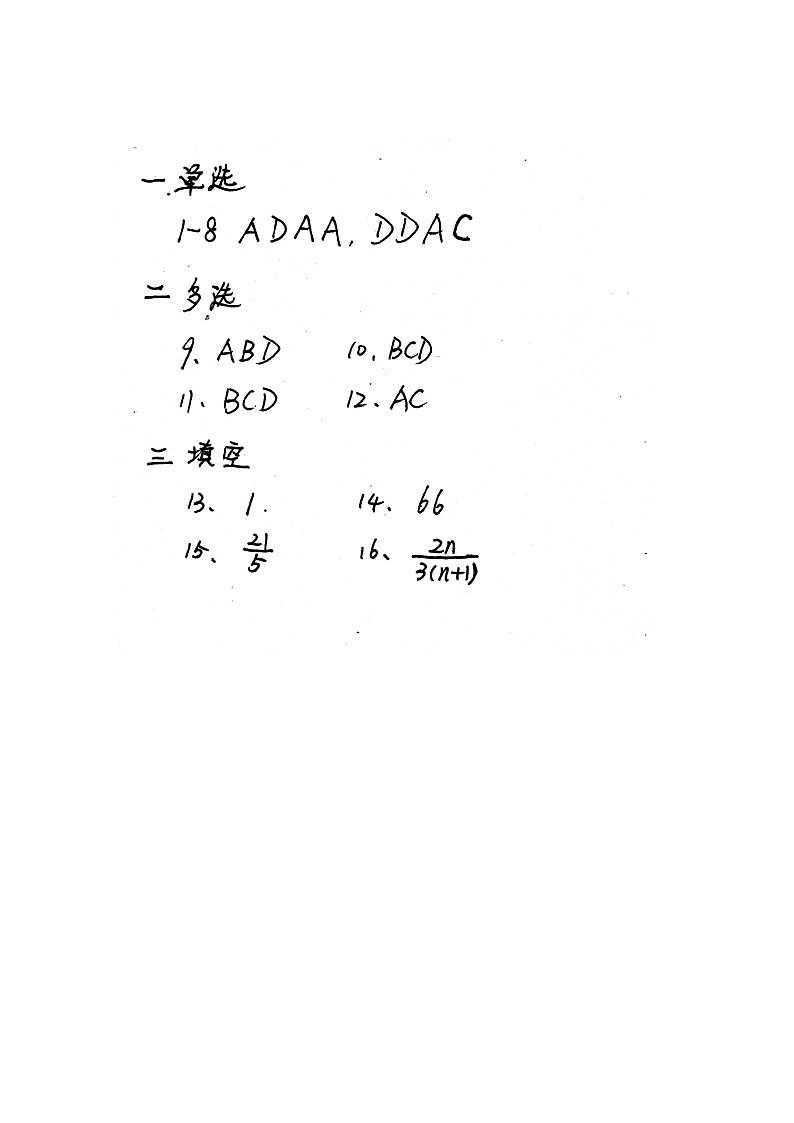 一.单选
1-8 ADAA, DDAC
二 多选
9、ABD 10、BCD
11、BCD 12、AC
三 填空
13、1. 14、66
15、21/5 16、2n/3(n+1)